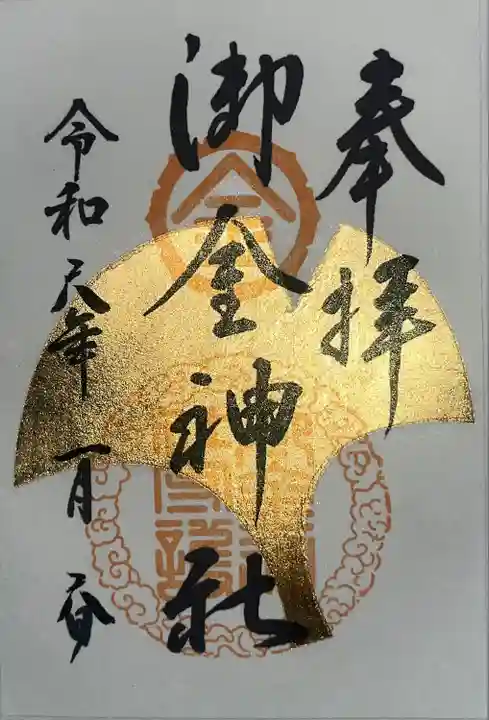 奉拝
御金神社
令和六年一月